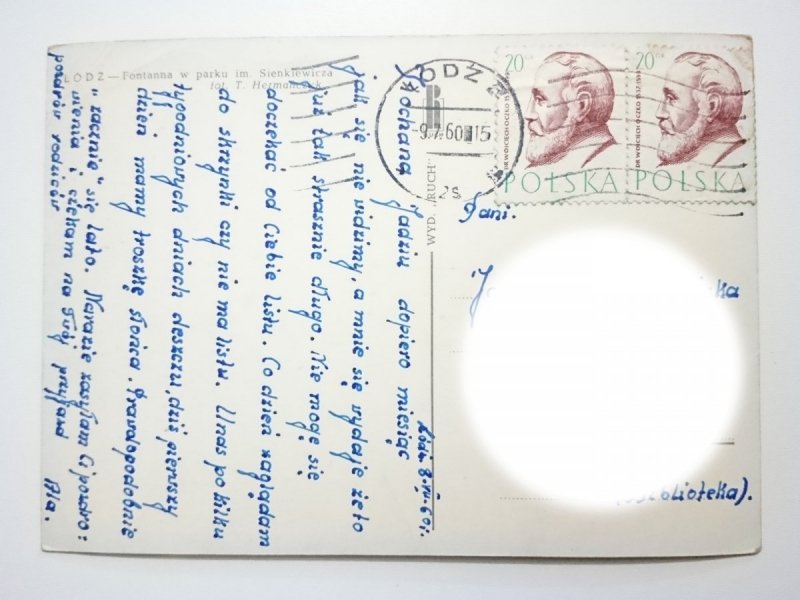 ŁÓDŹ — Fontanna w parku im. Sienkiewicza
fot. T. Hermańczyk
Łódź 8.VII.60r.
Kochana Jadziu dopiero miesiąc
jak się nie widzimy, a mnie się wydaje że to
już tak strasznie długo. Nie mogę się
doczekać od Ciebie listu. Co dzień zaglądam
do skrzynki czy nie ma listu. U nas po kilku
tygodniowych dniach deszczu, dziś pierwszy
dzień mamy troszkę słońca. Prawdopodobnie
"zacznie" się lato. Narazie zasyłam Ci pozdro:
wienia i czekam na Twój przyjazd Ala.
pozdrów rodziców
WYD. "RUCH"
ŁÓDŹ 2
-9.7.60 - 15
2s
20 GR
DR WOJCIECH OCZKO 1537-1599
POLSKA
20 GR
DR WOJCIECH OCZKO 1537-1599
POLSKA
Pani.
(Biblioteka).